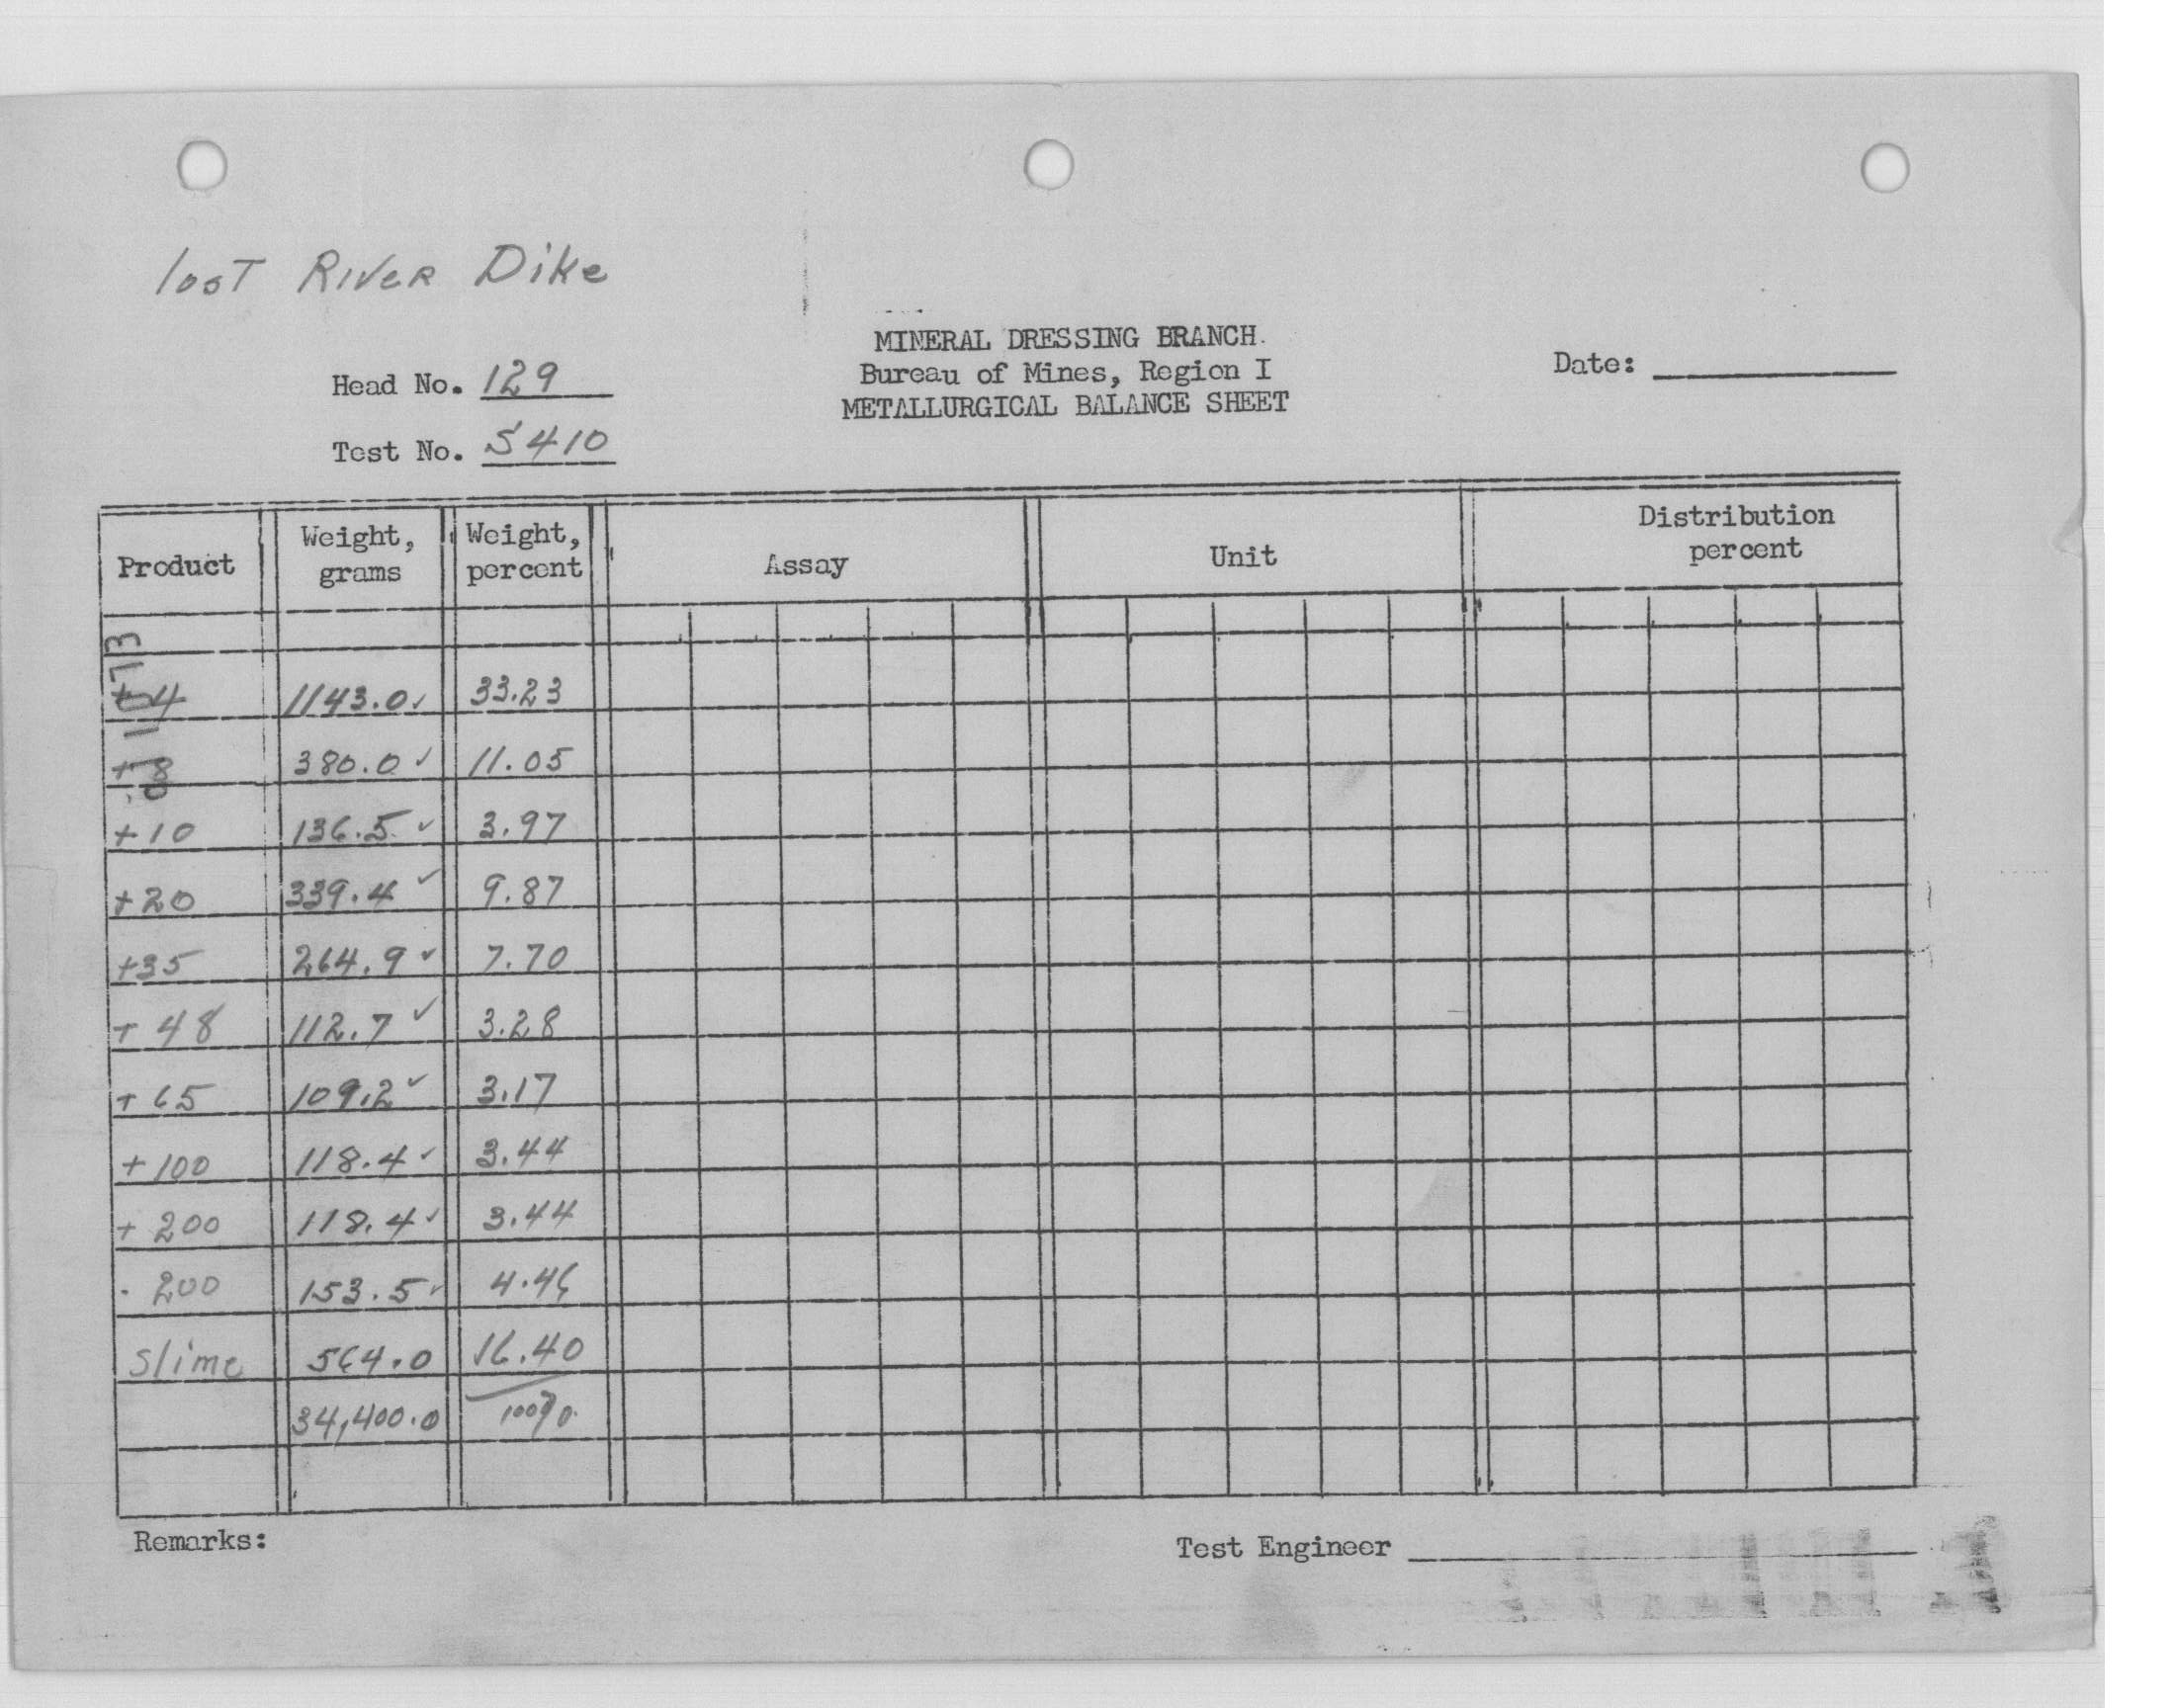 losT RIVER Dike
MINERAL DRESSING BRANCH.
Bureau of Mines, Region I
METALLURGICAL BALANCE SHEET
Date:
Head No. 129
Test No. S410
Product Weight, grams Weight, percent Assay Unit Distribution percent
+4 1143.0✓ 33.23
+8 380.0✓ 11.05
+10 136.5✓ 3.97
+20 339.4✓ 9.87
+35 264.9✓ 7.70
+48 112.7✓ 3.28
+65 109.2✓ 3.17
+100 118.4✓ 3.44
+200 118.4✓ 3.44
-200 153.5✓ 4.46
Slime 564.0 16.40
34,400.0 100%
Remarks:
Test Engineer